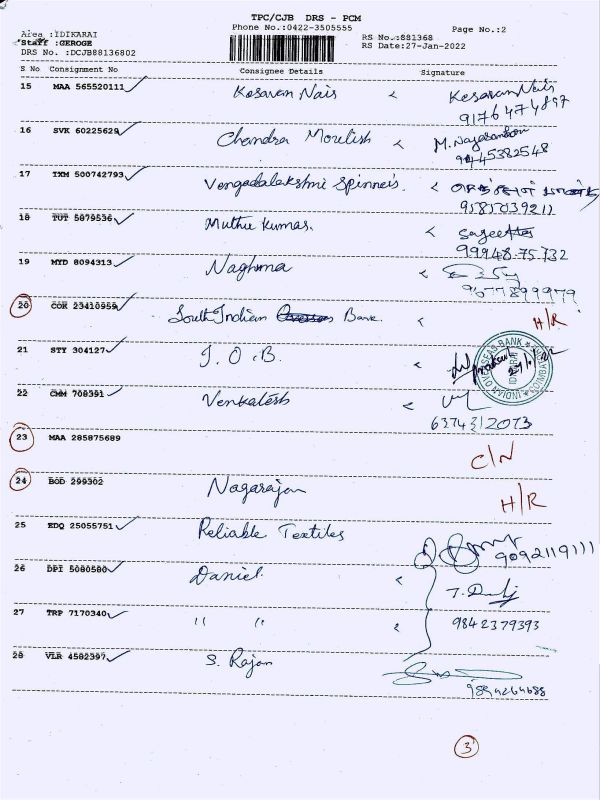 TPC/CJB DRS - PCM
Area :IDIKARAI Phone No.:0422-3505555 Page No.:2
Staff :GEROGE RS No.:881368
DRS No. :DCJB88136802 RS Date:27-Jan-2022
S No Consignment No Consignee Details Signature
15 MAA 565520111 Kesavan Nais Kesavan Nais
9176474897
16 SVK 60225629 Chandra Moulish M.
9445382548
17 TXM 500742793 Vengadalakshmi Spinners.
9585039211
18 TUT 5879536 Muthu Kumar.
99948 75732
19 MYD 8094313 Naghma
9677899979
20 COK 23410959 South Indian Bank. H/R
21 STY 304127 I.O.B. INDIAN OVERSEAS BANK
22 CMM 708391 Venkatesh
6374312073
23 MAA 285875689 C/N
24 BOD 299302 Nagarajan H/R
25 EDQ 25055751 Reliable Textiles
9092119111
26 DPI 5080580 Daniel.
27 TRP 7170340 " " 9842379393
28 VLR 4582397 S. Rajan
9894264688
3